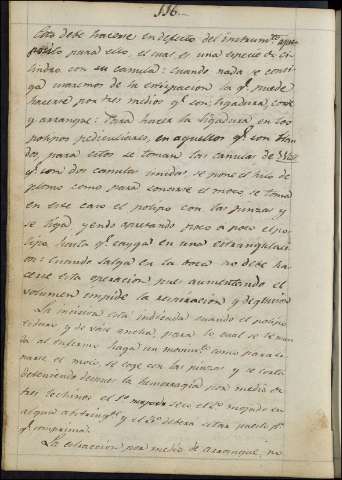 136.
Esto debe hacerse en defecto del instrum.to apro-
posito para ello, el cual es una especie de ci-
lindro con su canula: Cuando nada se consi-
ga usaremos de la extirpacion la q.e puede
hacerse por tres medios q.e son; ligadura, corte
y arranque: Para hacer la ligadura en los
polipos pediculares, en aquellos q.e son
dos, para estos se toman las canulas de
q.e son dos canulas unidas, se pone el hilo de
plomo como para el moco, se toma
en este caso el polipo con las pinzas y
se liga yendo apretando poco a poco el po-
lipo hasta q.e cayga en una estrangulaci-
on: Cuando salga en la boca no debe ha-
cerse esta operacion pues aumentando el
volumen impide la respiracion y deglucion
La incision está indicada cuando el polipo
y de vais ancha, para lo cual se le man-
da al enfermo haga un movim.to como para so-
narse el moco, se coge con las pinzas y se corta
deteniendo despues la hemorragia por medio de
tres lechinos el 1.o mojado seco el 2.o mojado en
algun astring.te y el 3.o deberá estar puesto p.a
q.e comprima.
La estraccion por medio de arranque, no